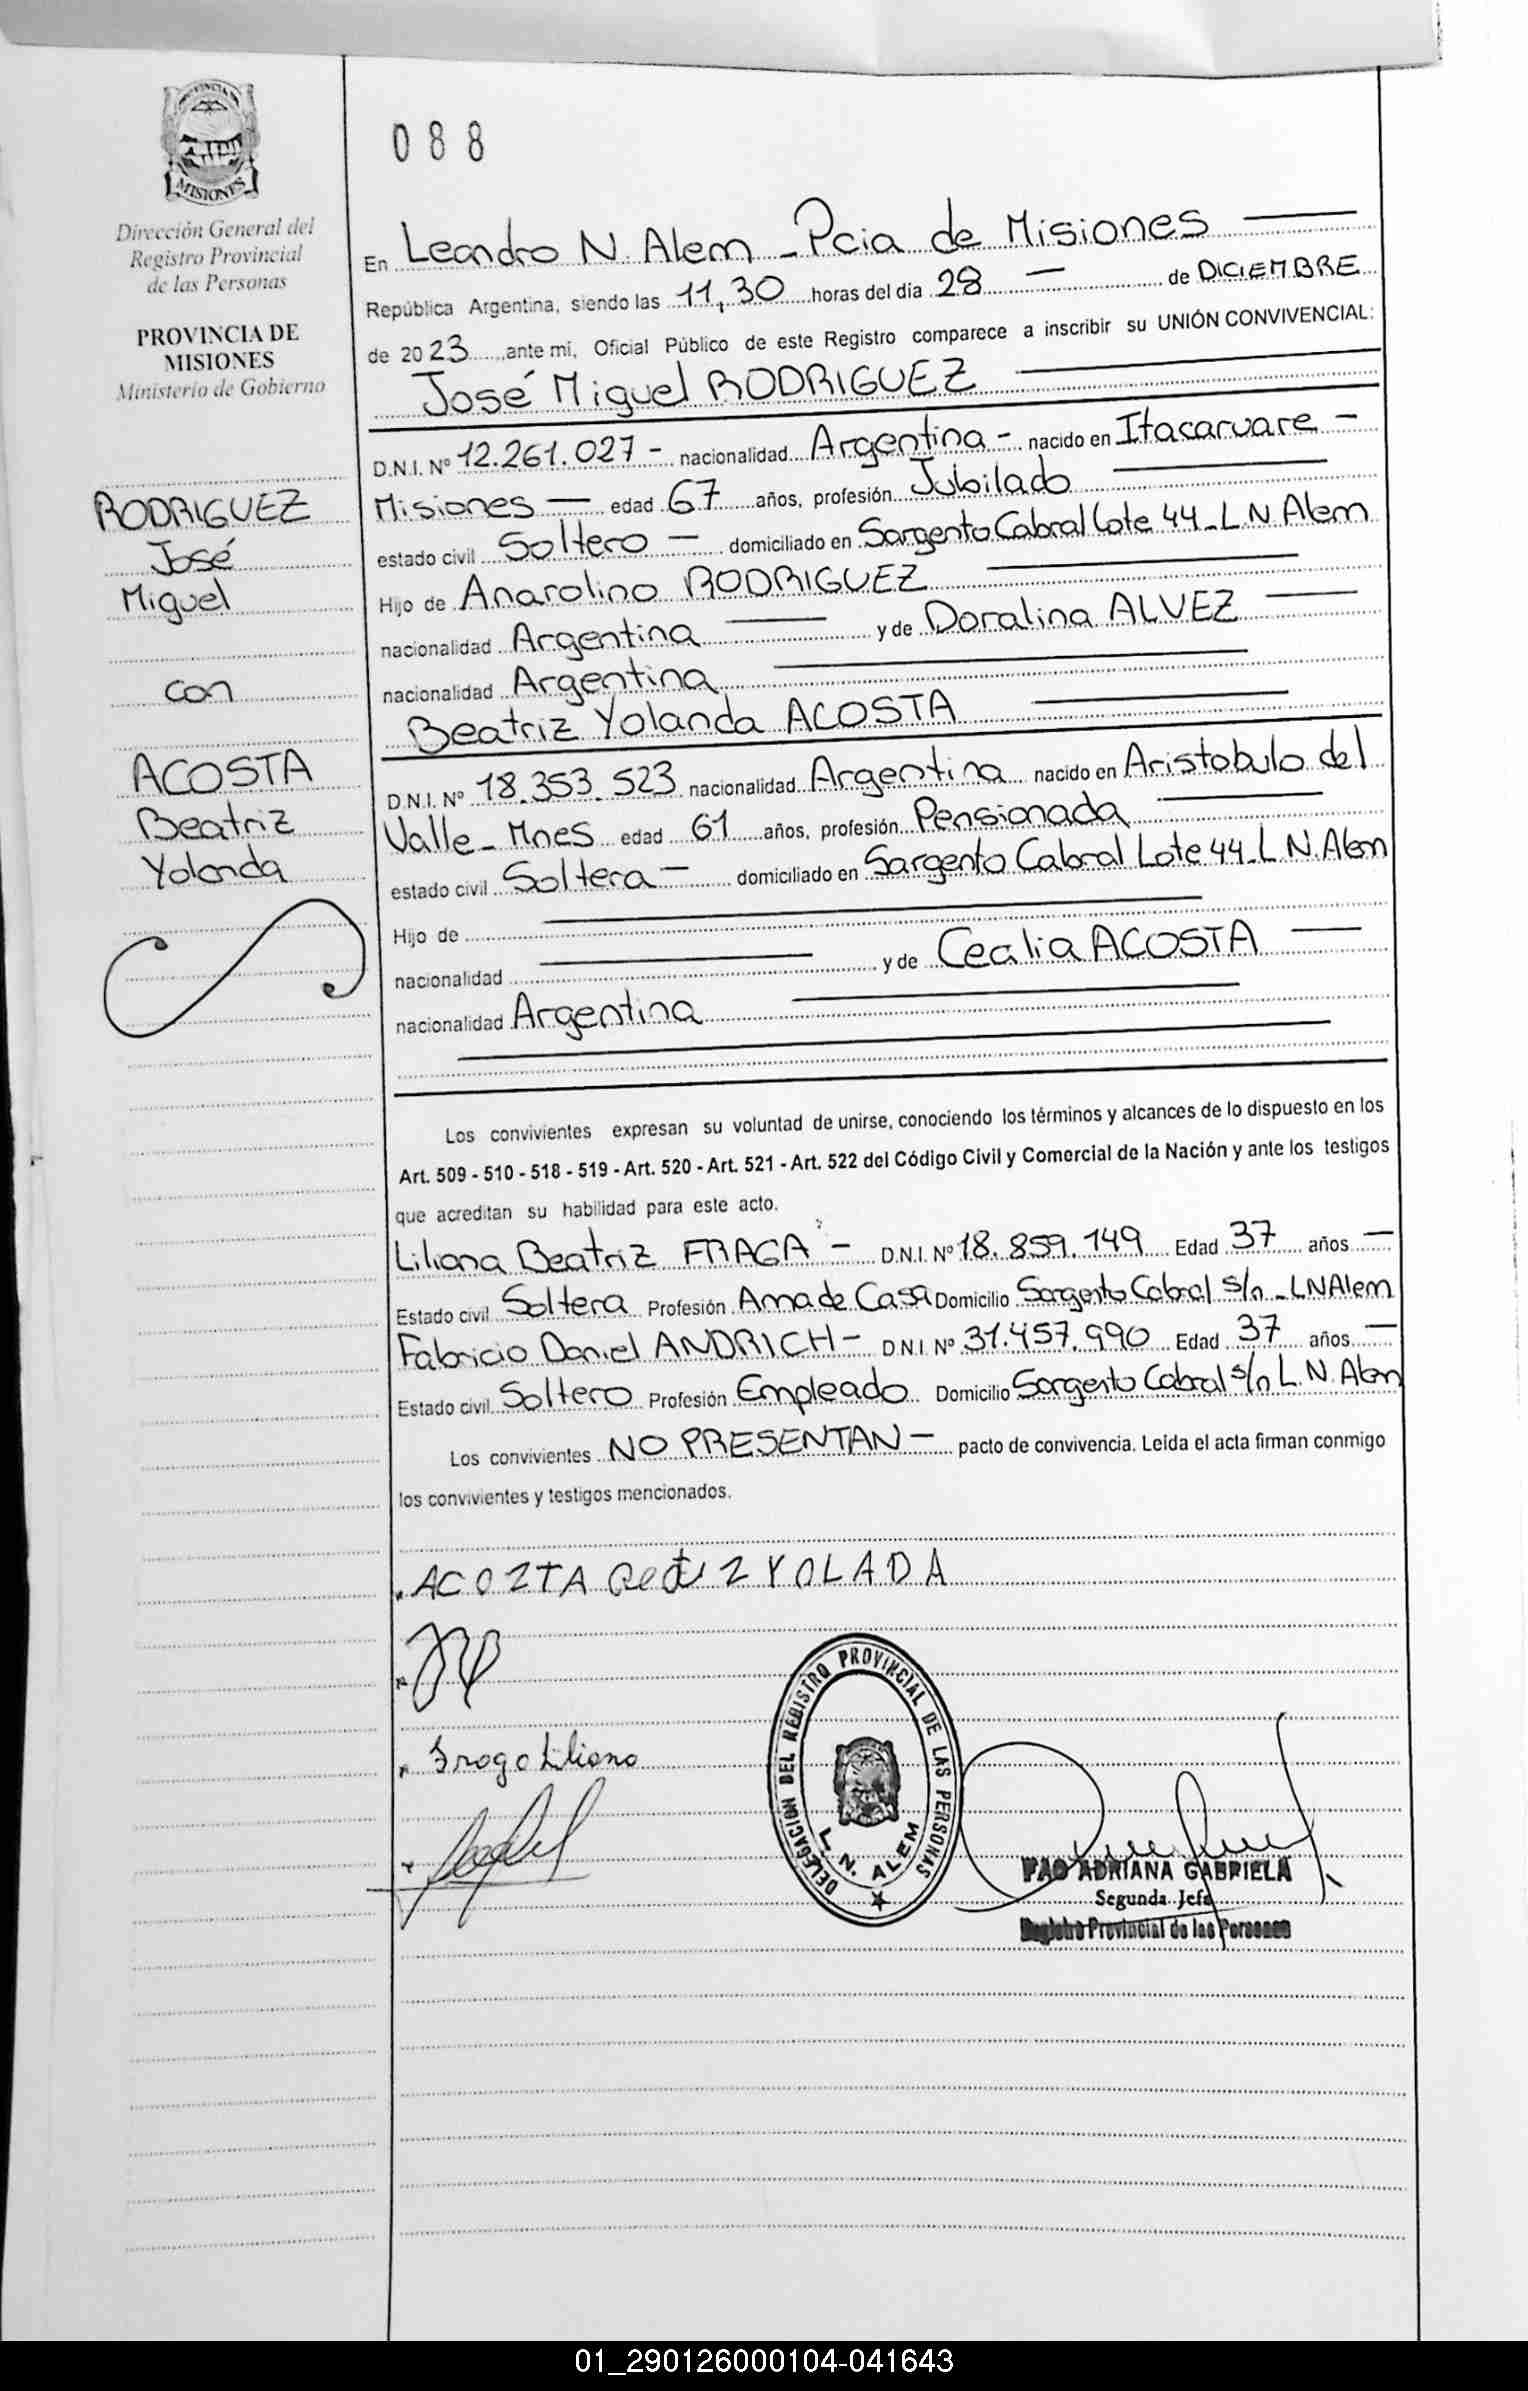 PROVINCIA DE
MISIONES
Dirección General del
Registro Provincial
de las Personas
PROVINCIA DE
MISIONES
Ministerio de Gobierno
RODRIGUEZ
José
Miguel
con
ACOSTA
Beatriz
Yolanda
088
En Leandro N. Alem - Pcia de Misiones
República Argentina, siendo las 11,30 horas del día 28 de DICIEMBRE
de 2023, ante mi, Oficial Público de este Registro comparece a inscribir su UNIÓN CONVIVENCIAL:
José Miguel RODRIGUEZ
D.N.I. Nº 12.261.027 - nacionalidad Argentina - nacido en Itacaruare -
Misiones - edad 67 años, profesión Jubilado
estado civil Soltero - domiciliado en Sargento Cabral Lote 44 - L N Alem
Hijo de Anarolino RODRIGUEZ
nacionalidad Argentina y de Doralina ALVEZ
nacionalidad Argentina
Beatriz Yolanda ACOSTA
D.N.I. Nº 18.353.523 nacionalidad Argentina nacido en Aristobulo del
Valle - Mnes edad 61 años, profesión Pensionada
estado civil Soltera - domiciliado en Sargento Cabral Lote 44 - L N. Alem
Hijo de
nacionalidad y de Cealia ACOSTA
nacionalidad Argentina
Los convivientes expresan su voluntad de unirse, conociendo los términos y alcances de lo dispuesto en los
Art. 509 - 510 - 518 - 519 - Art. 520 - Art. 521 - Art. 522 del Código Civil y Comercial de la Nación y ante los testigos
que acreditan su habilidad para este acto.
Liliana Beatriz FRAGA - D.N.I. Nº 18.859.149 Edad 37 años -
Estado civil Soltera Profesión Ama de Casa Domicilio Sargento Cabral s/n - LN Alem
Fabricio Daniel ANDRICH - D.N.I. Nº 31.457.990 Edad 37 años -
Estado civil Soltero Profesión Empleado Domicilio Sargento Cabral s/n L. N. Alem
Los convivientes NO PRESENTAN - pacto de convivencia. Leída el acta firman conmigo
los convivientes y testigos mencionados.
ACOZTA YOLADA
Fraga Liliana
DELEGACION DEL REGISTRO PROVINCIAL DE LAS PERSONAS
L. N. ALEM
ADRIANA GABRIELA
Segunda Jefa
Registro Provincial de las Personas
01_290126000104-041643